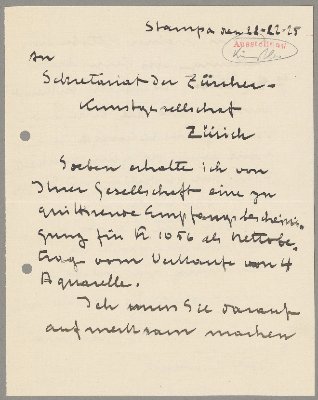 Stampa den 22-12-25
Ausstellung
An
Sekretariat der Zürcher-
Kunstgesellschaft
Zürich
Soeben erhalte ich von
Ihrer Gesellschaft eine zu
quittirende Empfangsbescheini-
gung für Fr 1056 als Nettobe-
trag vom Verkaufe von 4
Aquarelle.
Ich muss Sie darauf
aufmerksam machen